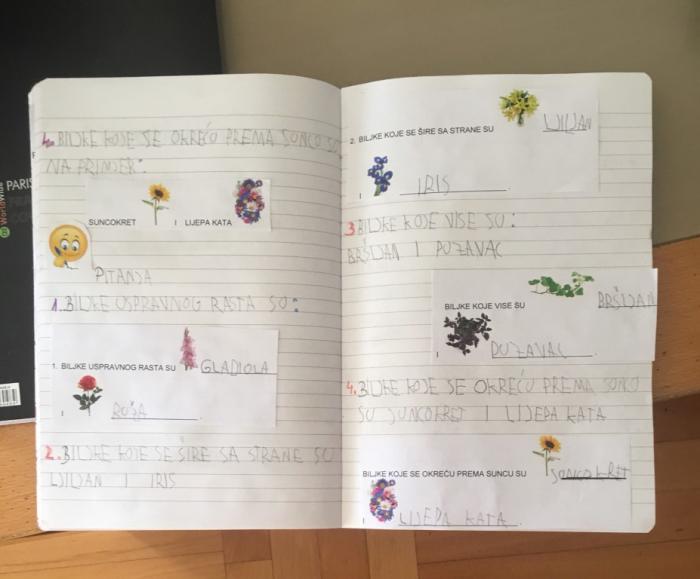 PARIS
WorldWide
4. BILJKE KOJE SE OKREĆU PREMA SUNCU SU
NA PRIMJER:
SUNCOKRET I LIJEPA KATA
PITANJA
1. BILJKE USPRAVNOG RASTA SU:
1. BILJKE USPRAVNOG RASTA SU GLADIOLA
I RUŽA.
2. BILJKE KOJE SE ŠIRE SA STRANE SU
LJILJAN I IRIS
2. BILJKE KOJE SE ŠIRE SA STRANE SU LJILJAN
I IRIS.
3 BILJKE KOJE VISE SU:
BRŠLJAN I PUZAVAC
BILJKE KOJE VISE SU BRŠLJAN
I PUZAVAC.
4. BILJKE KOJE SE OKREĆU PREMA SUNCU
SU SUNCOKRET I LIJEPA KATA
BILJKE KOJE SE OKREĆU PREMA SUNCU SU SUNCOKRET
I LIJEPA KATA.